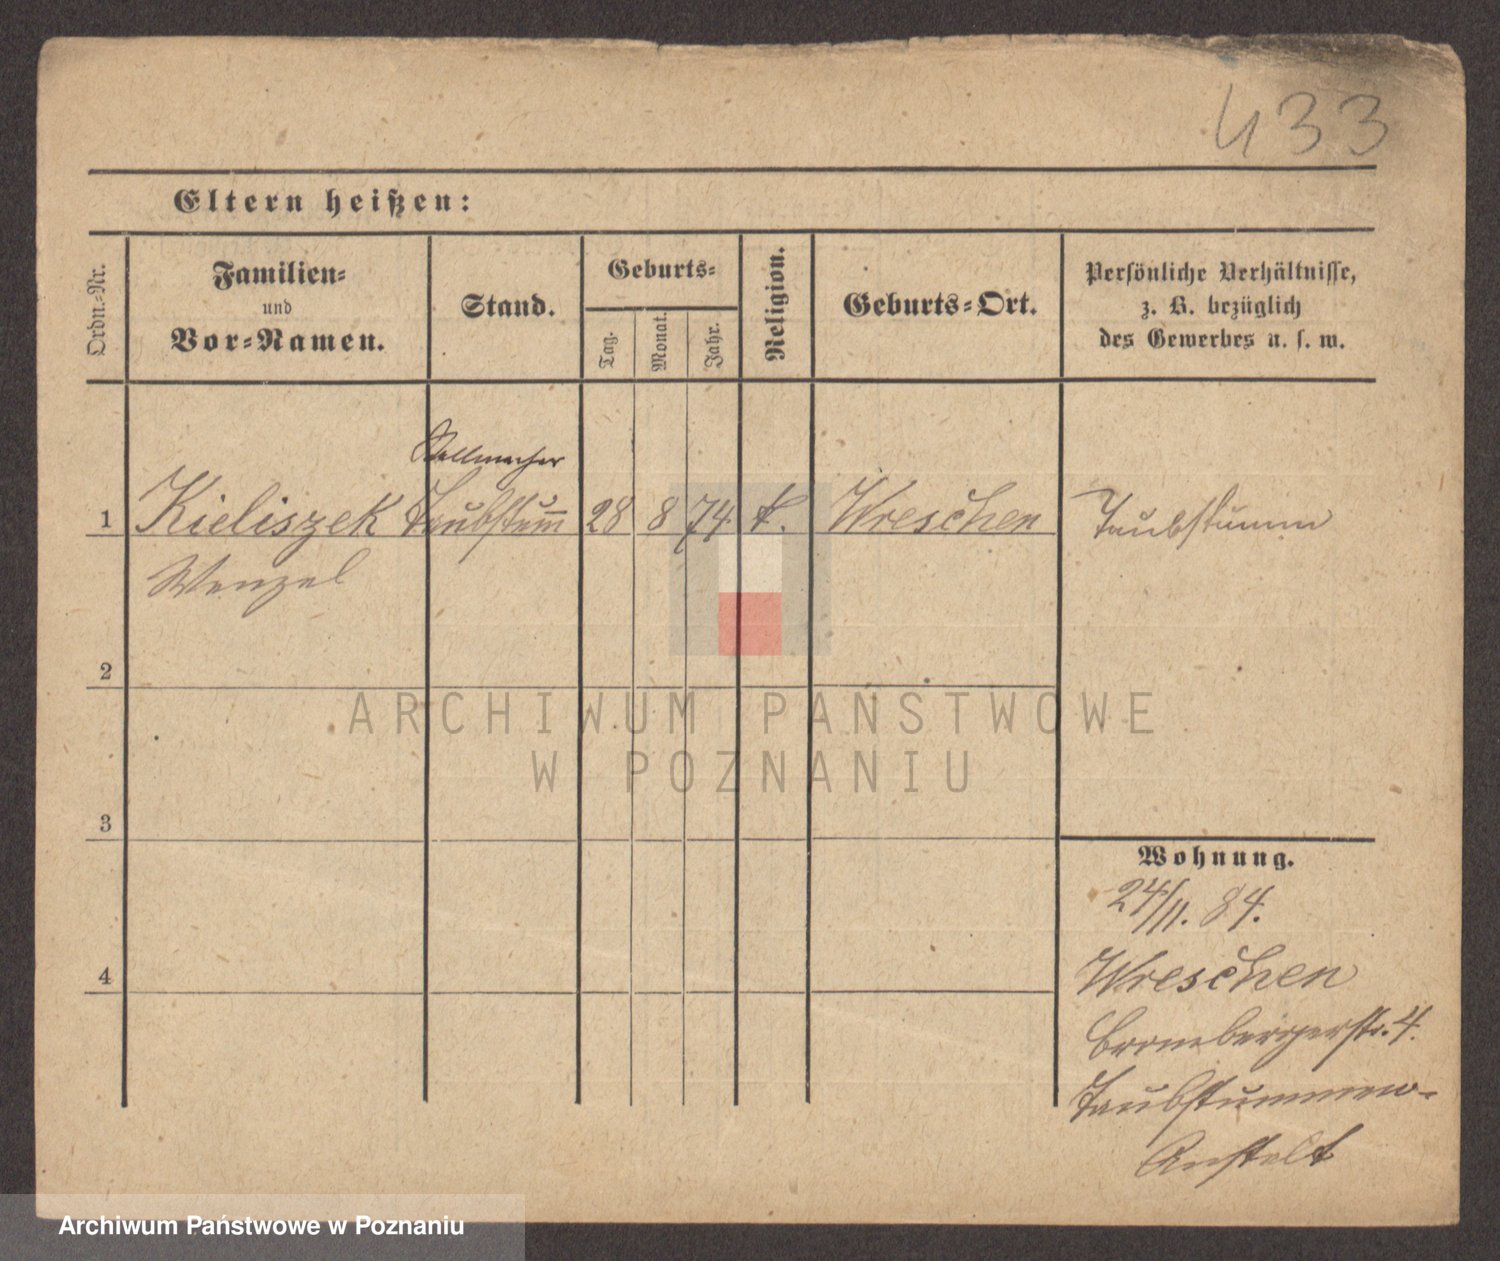 433
Eltern heißen:
Ordn.-Nr.
Familien-
und
Vor-Namen.
Stand.
Geburts-
Tag.
Monat.
Jahr.
Religion.
Geburts-Ort.
Persönliche Verhältnisse,
z. B. bezüglich
des Gewerbes u. s. w.
Stellmacher
1 Kieliszek Taubstum̅ 28 8 74. k. Wreschen Taubstumm
Wenzel
2
3
4
Wohnung.
24/11. 84.
Wreschen
Brombergerstr. 4.
Taubstummen-
Anstalt
ARCHIWUM PAŃSTWOWE
W POZNANIU
Archiwum Państwowe w Poznaniu